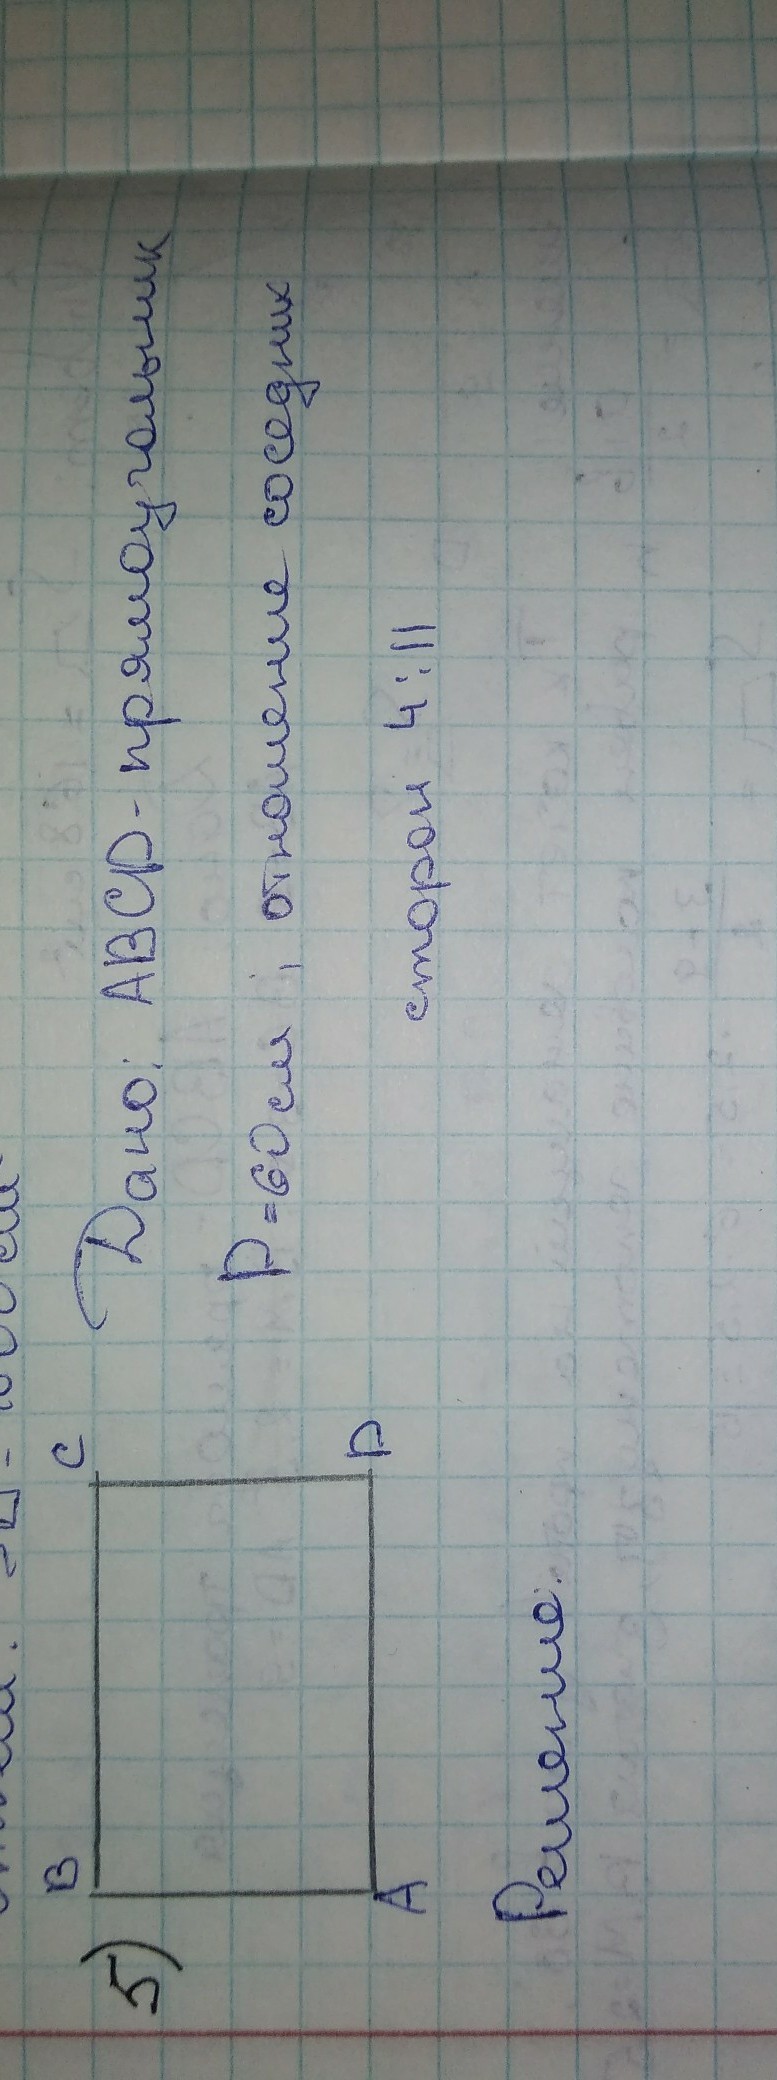 5)
B C
A D
Дано: ABCD - прямоугольник
P = 60 см, отношение соседних
сторон 4:11
Решение.